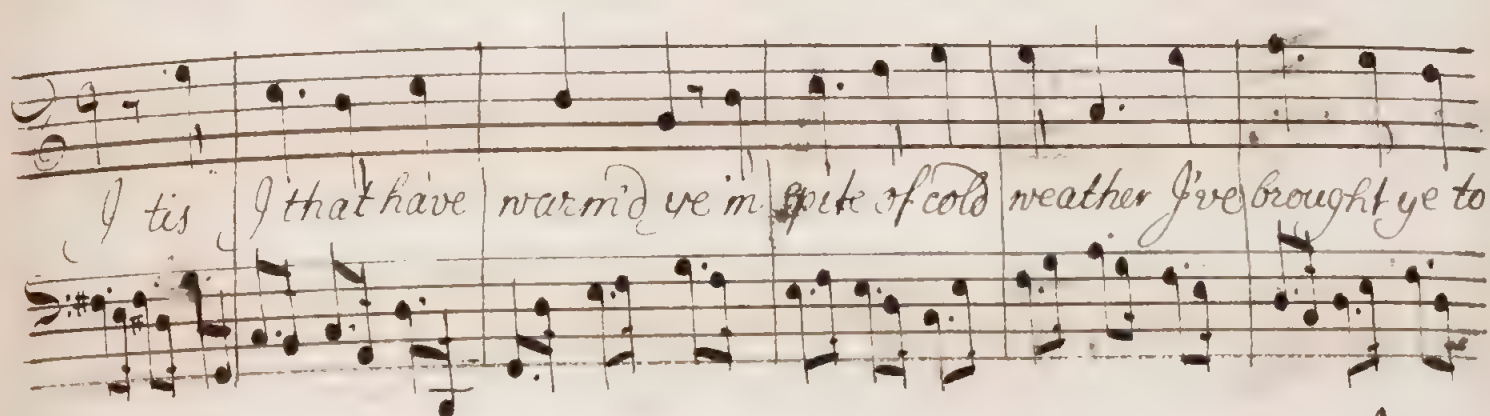 I tis I that have warm'd ye in spite of cold weather I've brought ye to